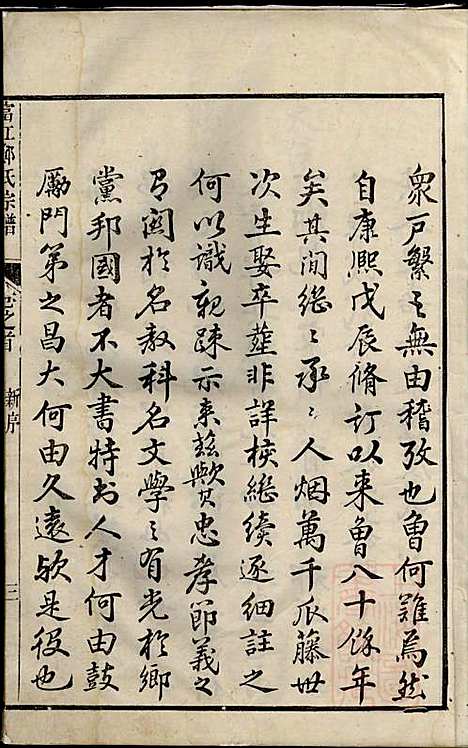 衆戶繁〻無由稽攷也曾何難焉然
自康熙戊辰脩訂以来曾八十馀年
矣其间繼〻承〻人烟萬千瓜藤世
次生娶卒塟非詳核繼續逐细註之
何以識親疎示来兹欤其忠孝節義之
有関於名教科名文學〻有光於鄉
黨邦國者不大書特书人才何由鼓
勵門第之昌大何由久遠欤是役也
富江鄭氏宗譜
卷之首
新序
三